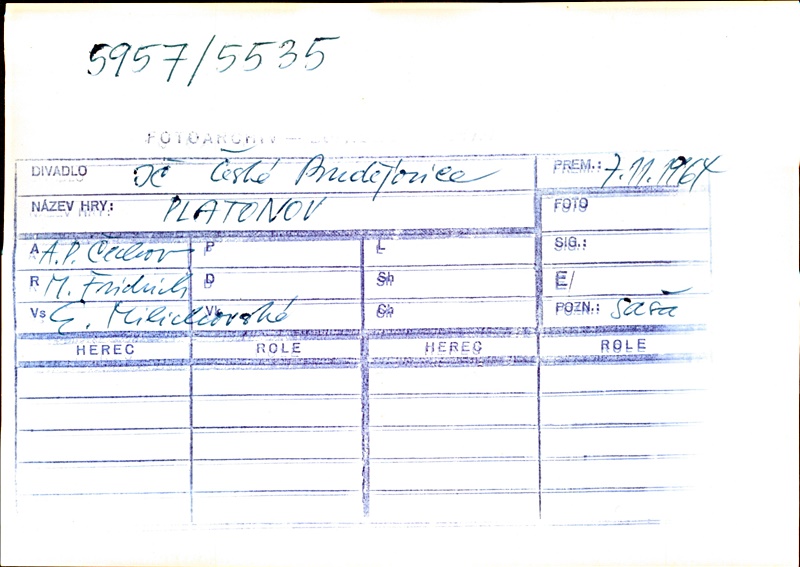 5957/5535
FOTOARCHIV —
DIVADLO České Budějovice PREM.: 7.11.1964
NÁZEV HRY: PLATONOV FOTO
A A.P. Čechov P L SIG.:
R M. Fridrich D Sh E/
Vs Vk Ch POZN.: Saša
HEREC ROLE HEREC ROLE